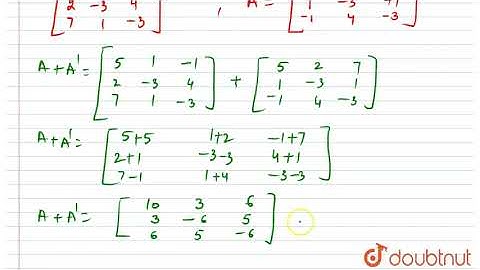 2 -3 4 , A = 1 -3
7 1 -3 -1 4 -3
A + A' = [ 5 1 -1 ] + [ 5 2 7 ]
2 -3 4 1 -3 1
7 1 -3 -1 4 -3
A + A' = [ 5+5 1+2 -1+7 ]
2+1 -3-3 4+1
7-1 1+4 -3-3
A + A' = [ 10 3 6 ]
3 -6 5
6 5 -6
doubtnut